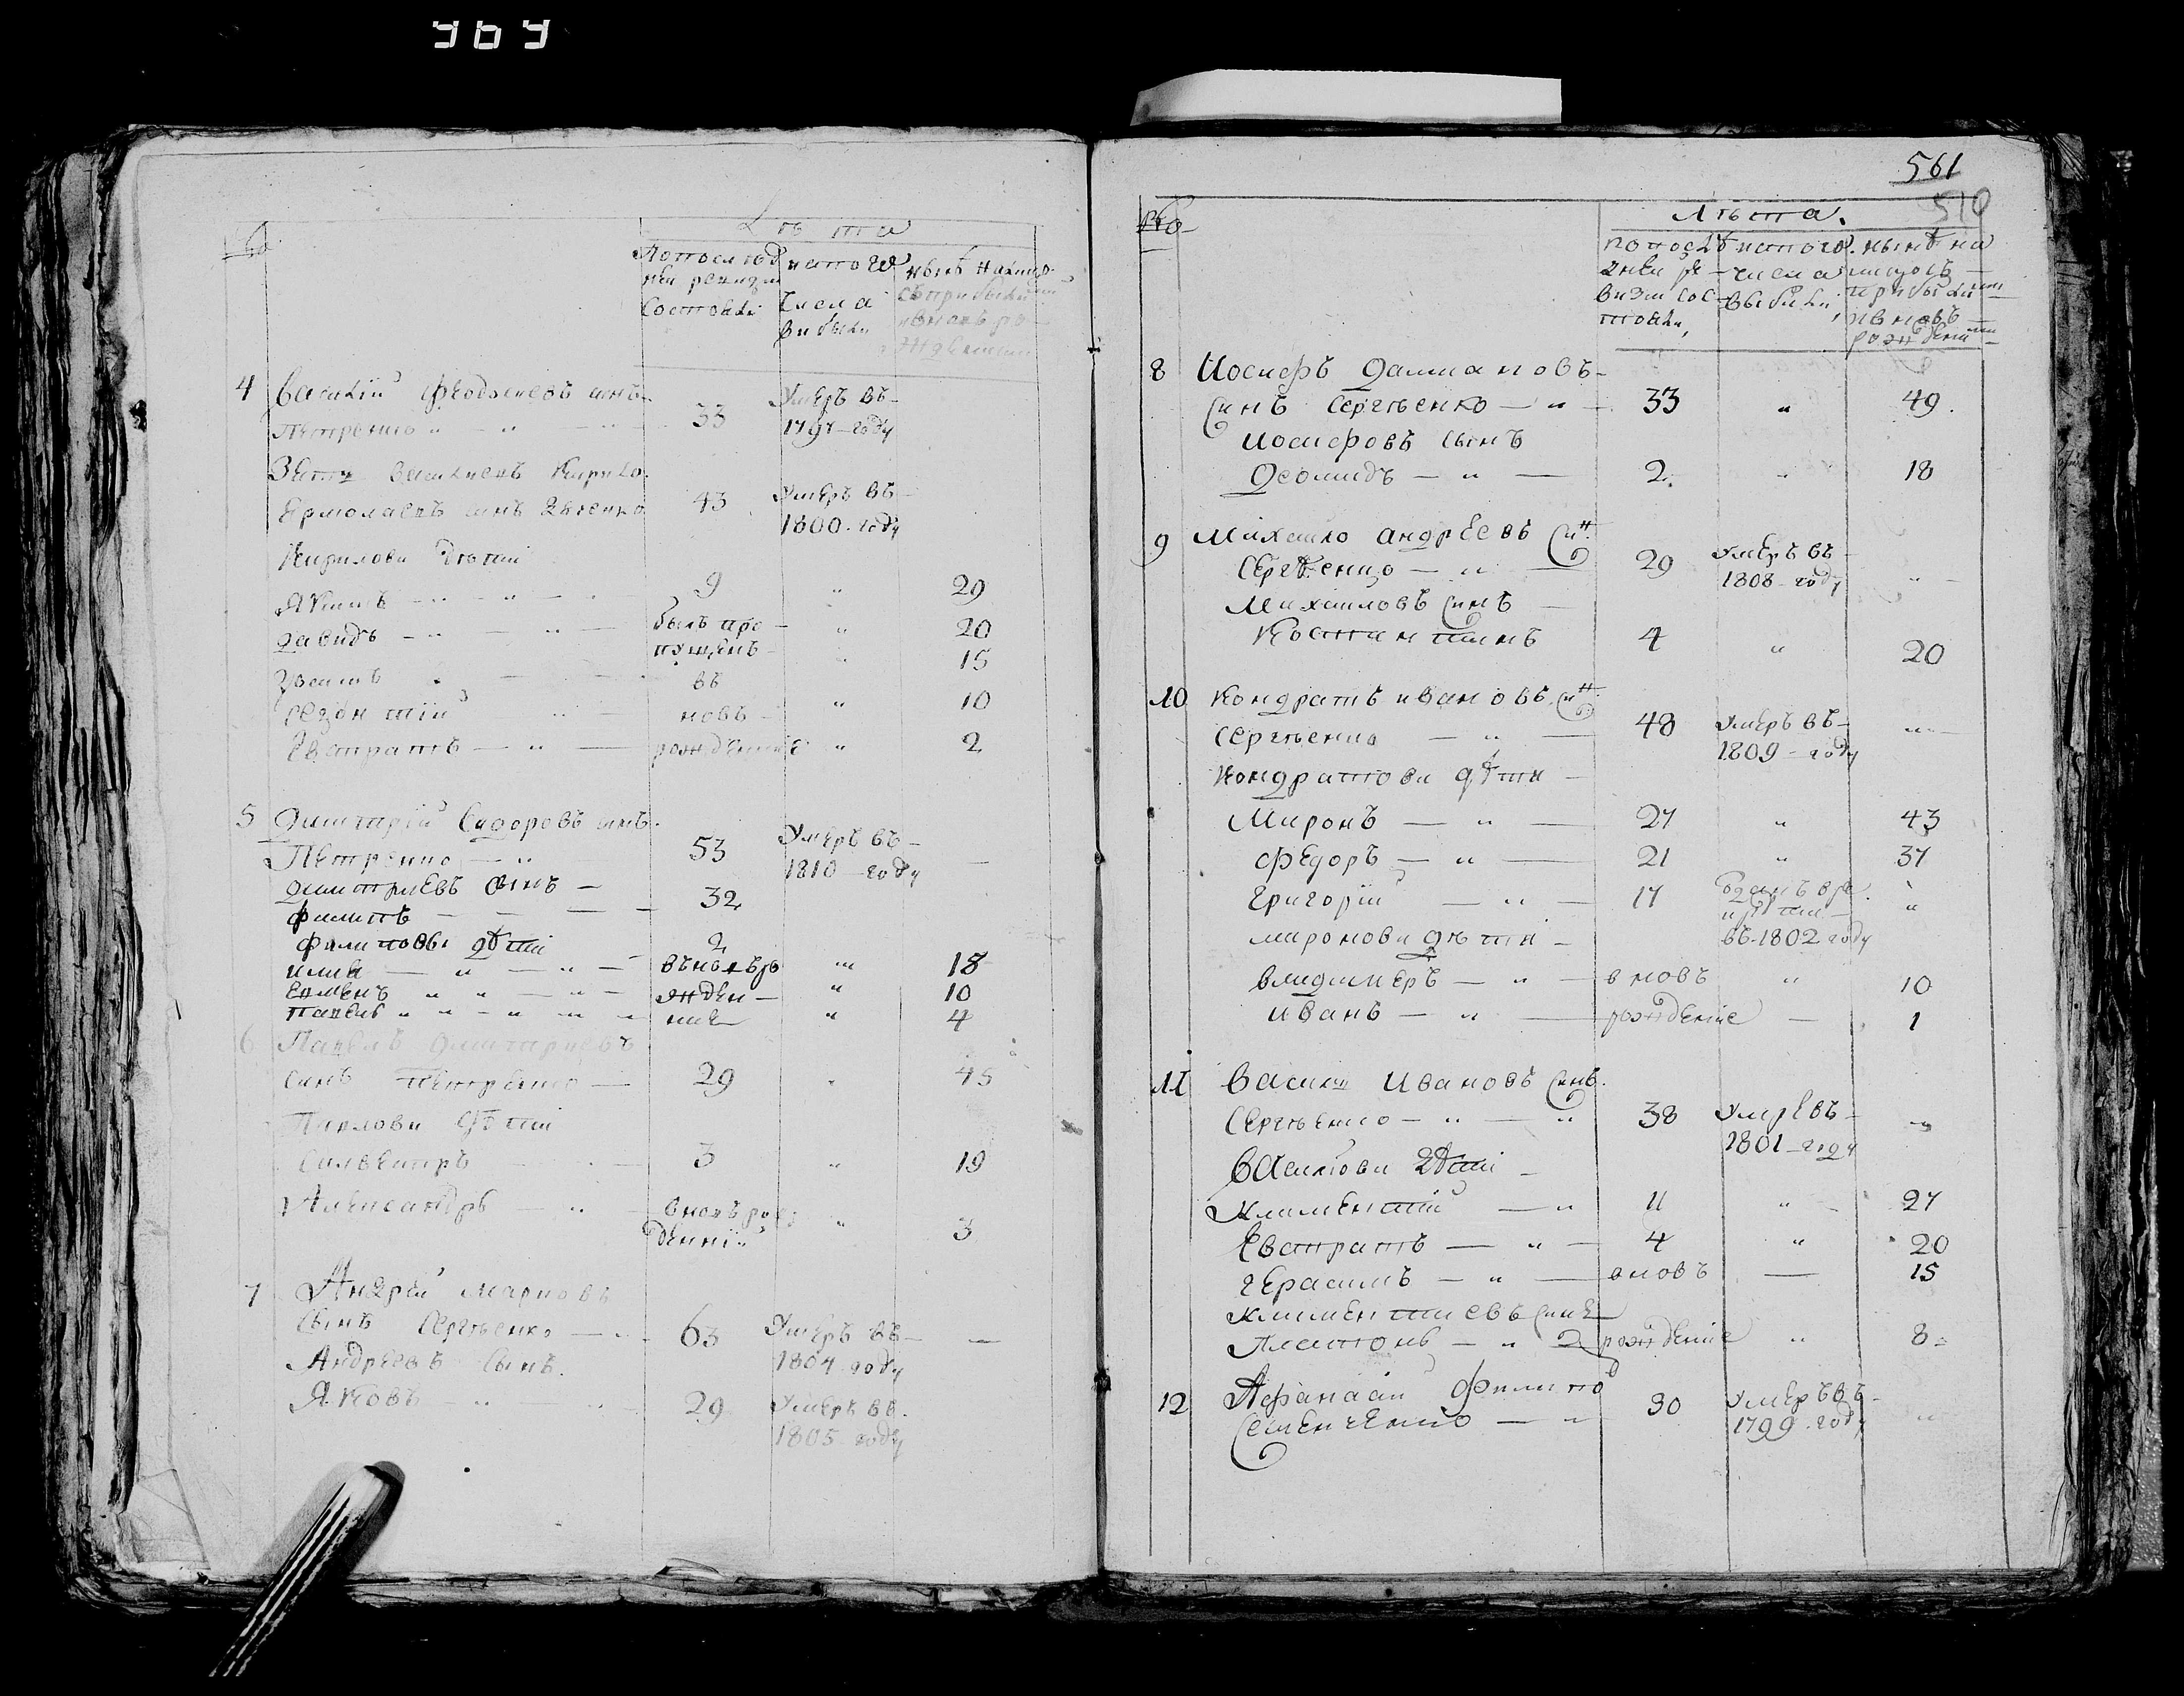 969
Лѣта
Попослѣд ней ревизии состояли
исъ того числа выбыли
нынѣ налицо съ прибылыми
4 Василий Федосиевъ сынъ
Петренко 33 Умеръ въ 1797 году
Зять Василиевъ Кирило
Ермолаевъ сынъ 43 Умеръ въ 1800 году
Кирилови дѣти
Якимъ 9 " 29
Давидъ былъ про " 20
пущенъ " 15
въ
новъ " 10
Евстратъ рожденние " 2
5 Димитрий Сидоровъ сынъ
Петренко 53 Умеръ въ 1810 году —
Димитриевъ сынъ
Филипъ 32
Филиповы дѣти 2
Илия " 18
" 10
" 4
6 Павелъ Димитриевъ
синъ Петренко 29 " 45
Павлови дѣти
Силвестръ 3 " 19
Александръ вновъ рож " 3
денний
7 Андрей Марковъ
сынъ Сергѣенко 63 Умеръ въ 1804 году —
Андреевъ сынъ
Яковъ 29 Умеръ въ 1805 году
561
510
№
Лѣта.
попослѣдней ревизии состояли,
исъ того числа выбыли,
нынѣ на лицо съ прибылыми и вновь рожденими
8 Иосифъ Дамиановъ
синъ Сергѣенко — " — 33 " 49.
Иосифовъ сынъ
Деомидъ — " — 2. " 18
9 Михаило Андреевъ син.
Сергѣенко — " — 29 Умеръ въ 1808 году "
Михаиловъ синъ
Костантинъ 4 " 20
10 Кондратъ Ивановъ син.
Сергѣенко — " — 48 Умеръ въ 1809 году "
Кондратови дѣти
Миронъ — " — 27 " 43
Федоръ — " — 21 " 37
Григорий — " — 17 отданъ в ре
круты въ 1802 году "
Миронови дѣти
Владимеръ — " — вновъ " 10
Иванъ — " — рожденіе — 1
11 Василий Ивановъ синъ.
Сергѣенко — " — " 38 Умре въ 1801 году "
Василови дѣти
Климентий — " 11 " 27
Евстратъ — " — 4 " 20
Герасимъ — " — вновъ — 15
Климентиевъ синъ
Платонъ — " 2 рожденіе " 8
12 Афанасий Филипо
Семенченко — " 30 Умеръ въ 1799 году "